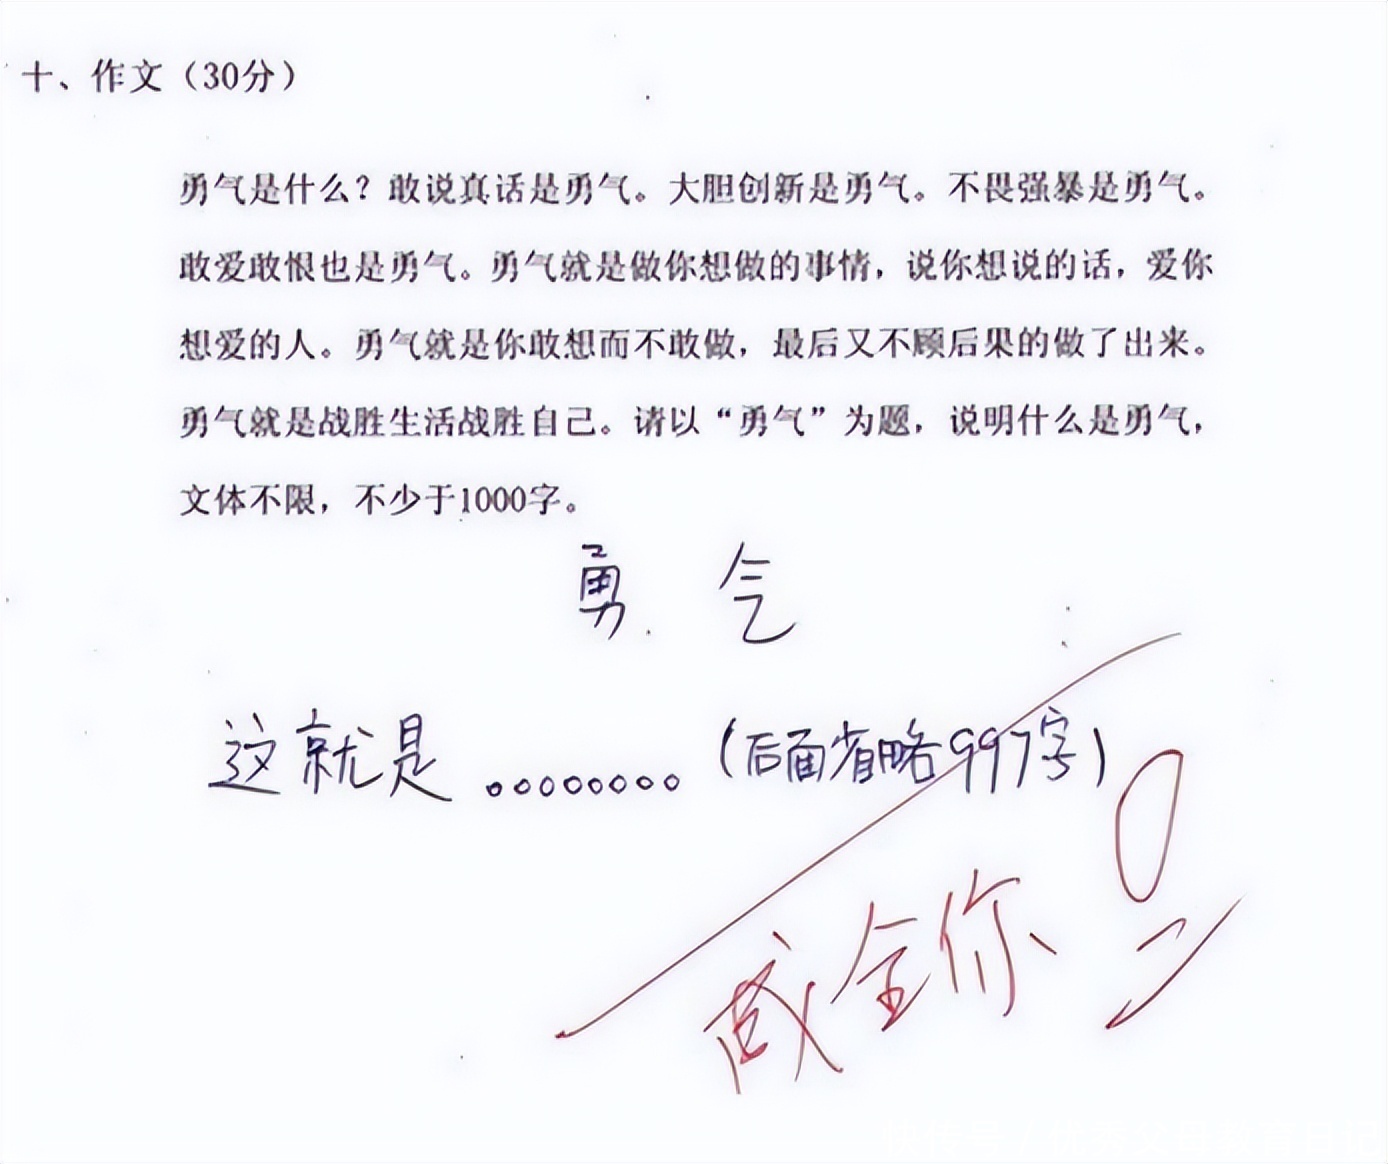 十、作文（30分）
勇气是什么？敢说真话是勇气。大胆创新是勇气。不畏强暴是勇气。
敢爱敢恨也是勇气。勇气就是做你想做的事情，说你想说的话，爱你
想爱的人。勇气就是你敢想而不敢做，最后又不顾后果的做了出来。
勇气就是战胜生活战胜自己。请以“勇气”为题，说明什么是勇气，
文体不限，不少于1000字。
勇 气
这就是 。。。。。。。。（后面省略997字）
0
成全你